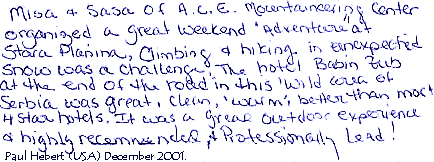 Misa & Sasa of A.C.E. Mountaineering Center
organized a great weekend "Adventure" at
Stara Planina, Climbing & hiking in unexpected
snow was a challenge. The hotel Babin Zub
at the end of the road in this 'wild area of
Serbia was great, clean, 'warm', better than most
4 star hotels. It was a great outdoor experience
& highly recommended, & Professionally Lead!
Paul Hebert (USA) December 2001.